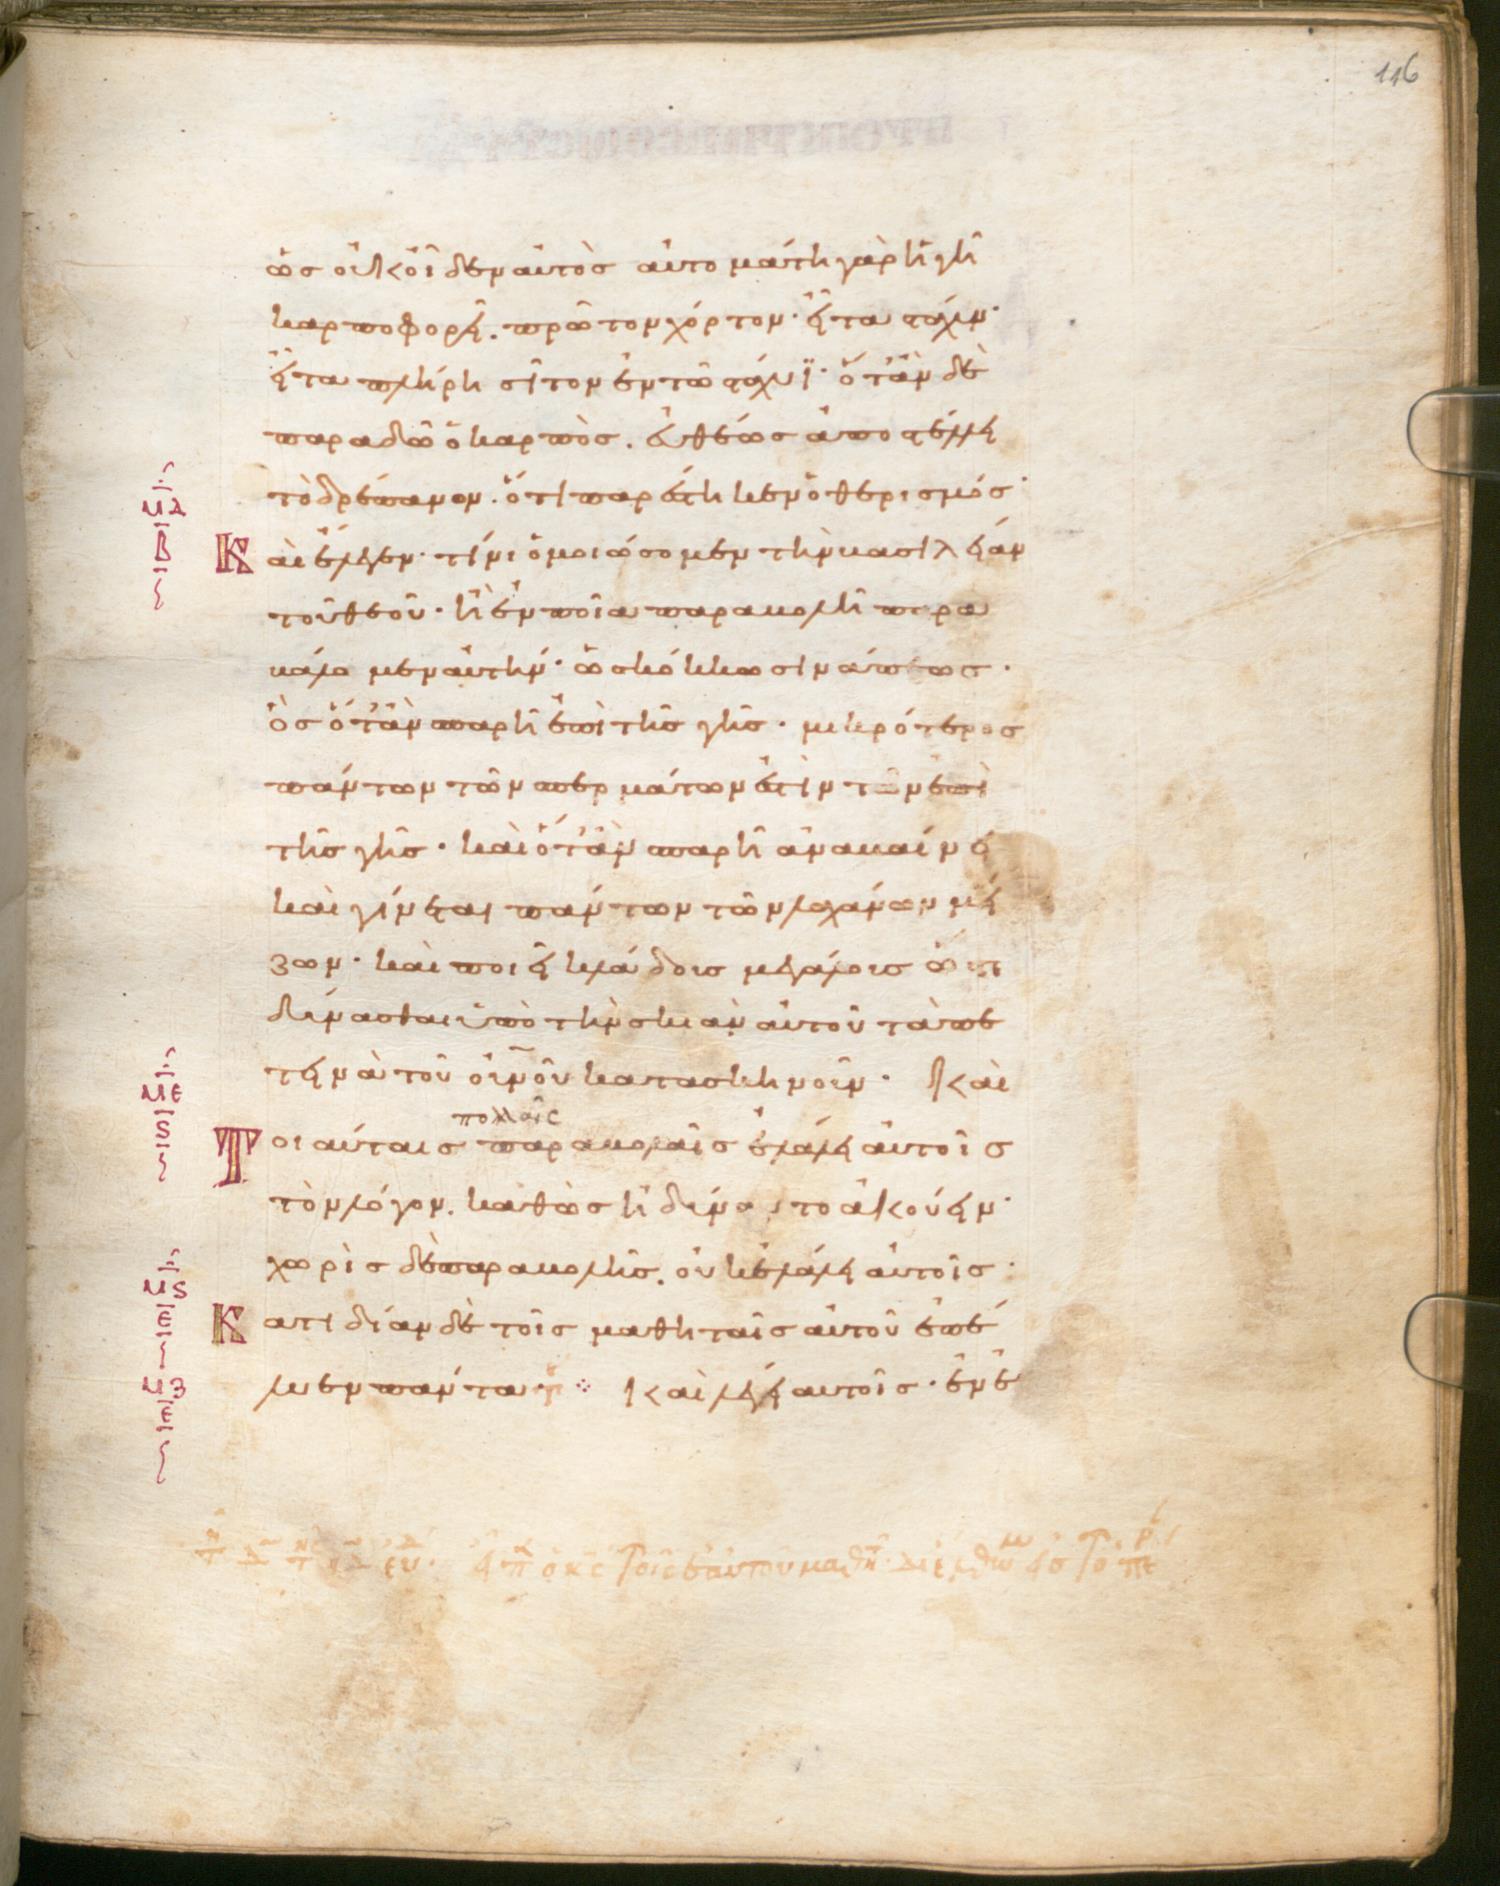 116
ὡς οὐκ οἶδεν αὐτὸς αὐτομάτη γὰρ ἡ γῆ
καρποφορεῖ. πρῶτον χόρτον· εἶτα στάχυν·
εἶτα πλήρη σῖτον ἐν τῶ στάχυϊ· ὅτὰν δὲ
παραδῶ ὁ καρπὸς. εὐθέως ἀποστέλλει
τὸ δρέπανον. ὅτι παρέστηκεν ὁ θερισμός·
μδ
β
Καὶ ἔλεγεν· τίνι ὁμοιώσομεν τὴν βασιλείαν
τοῦ θεοῦ· ἢ ἐν ποία παραβολῆ παρα
βάλωμεν αὐτήν· ὡς κόκκω σινάπεως·
ὃς ὅτὰν σπαρῆ ἐπὶ τῆς γῆς· μικρότερος
πάντων τῶν σπερμάτων ἐστὶν τῶν ἐπὶ
τῆς γῆς· καὶ ὅτὰν σπαρῆ ἀναβαίνει
καὶ γίνεται πάντων τῶν λαχάνων μεί
ζων· καὶ ποιεῖ κλάδοις μεγάλοις ὥστε
δύνασθαι ὑπὸ τὴν σκιὰν αὐτοῦ τὰ πε
τεινὰ τοῦ οὐνοῦ κατασκηνοῦν· Καὶ
με
ς
πολλαῖς
Τοιαύταις παραβολαῖς ἐλάλει αὐτοῖς
τὸν λόγον. καθὼς ἠδύναντο ἀκούειν·
μς
ε
χωρὶς δὲ παραβολῆς. οὐκ ἐλάλει αὐτοῖς·
Κατιδίαν δὲ τοῖς μαθηταῖς αὐτοῦ ἐπέ
μζ
ε
λυεν πάντα· Καὶ λέγει αυτοῖς· ἐν ἐ
εἶπ ὁ κς τοῖς ἑαυτοῦ μαθητ· διέλθωμ εἰς τὸ πε